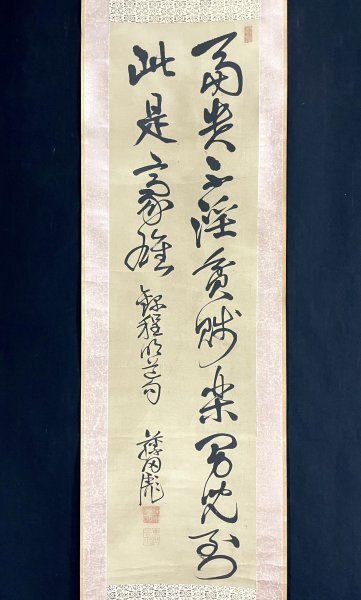 富貴不淫貧賤楽男児到
此是豪雄 録程明道句
藤田彪